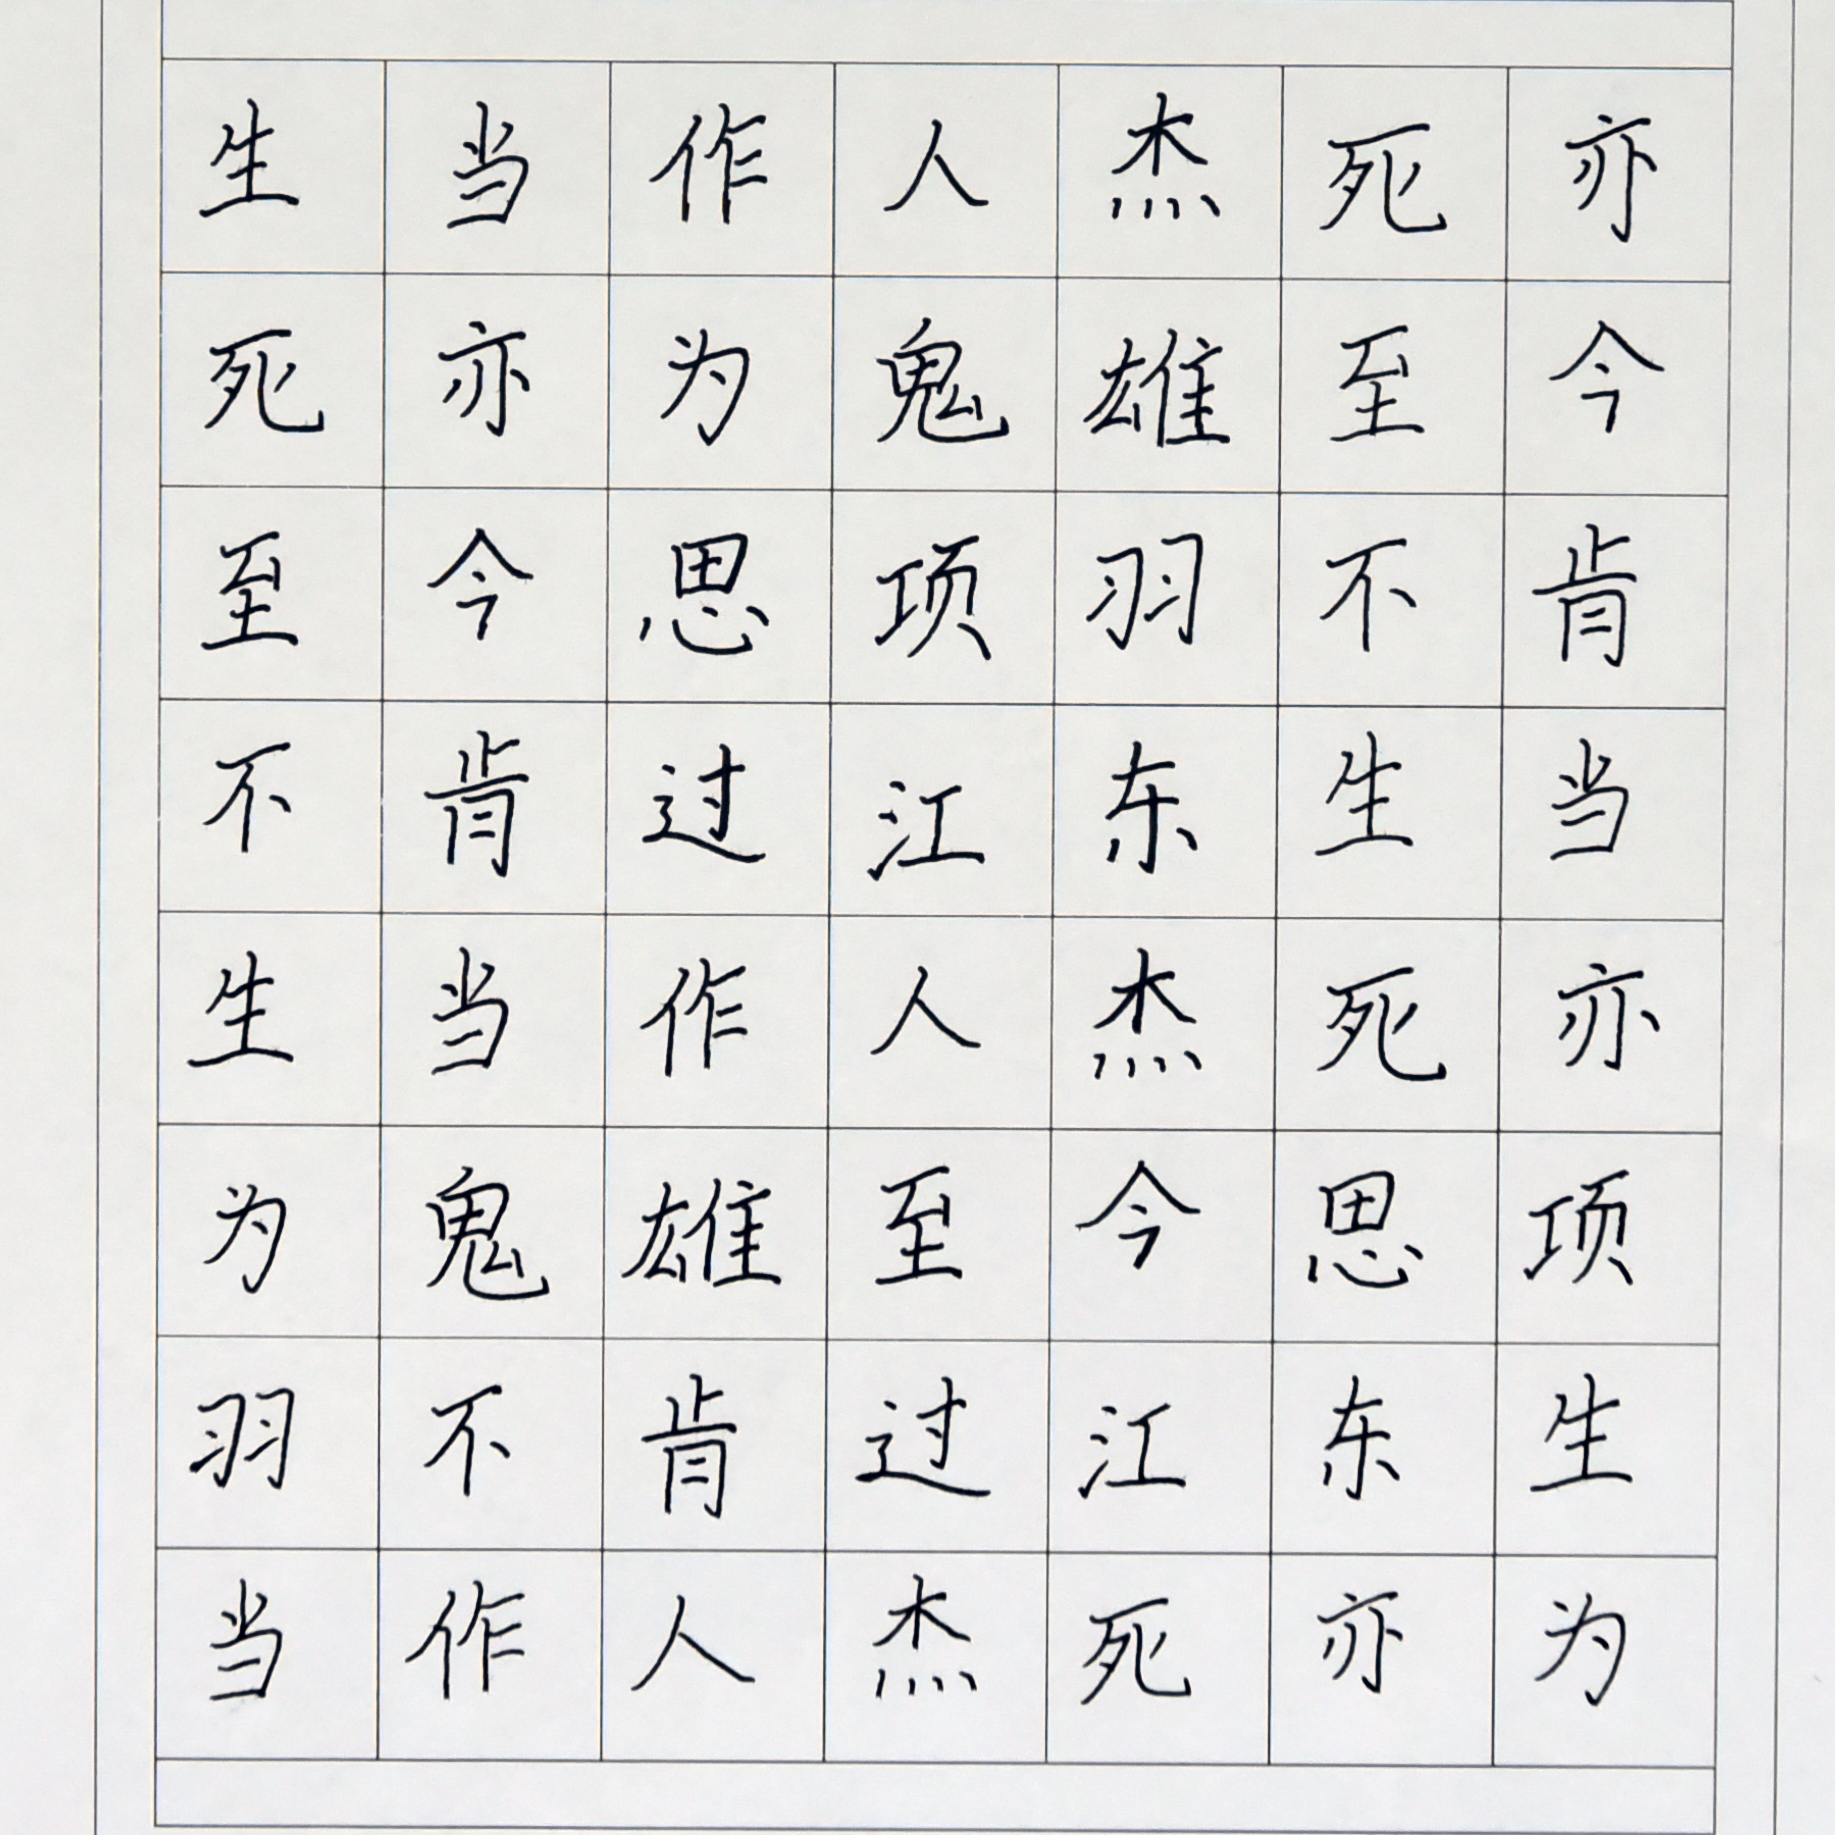 生当作人杰死亦
死亦为鬼雄至今
至今思项羽不肯
不肯过江东生当
生当作人杰死亦
为鬼雄至今思项
羽不肯过江东生
当作人杰死亦为